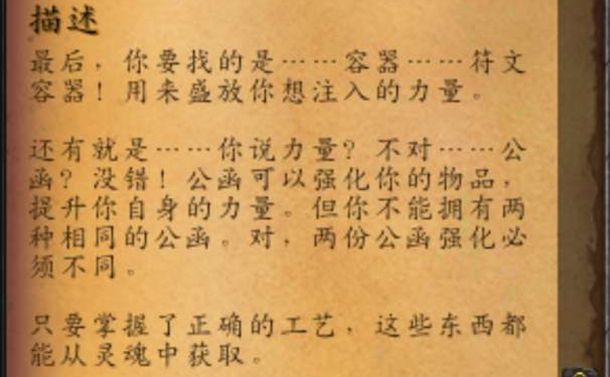 描述
最后，你要找的是……容器……符文
容器！用来盛放你想注入的力量。
还有就是……你说力量？不对……公
函？没错！公函可以强化你的物品，
提升你自身的力量。但你不能拥有两
种相同的公函。对，两份公函强化必
须不同。
只要掌握了正确的工艺，这些东西都
能从灵魂中获取。